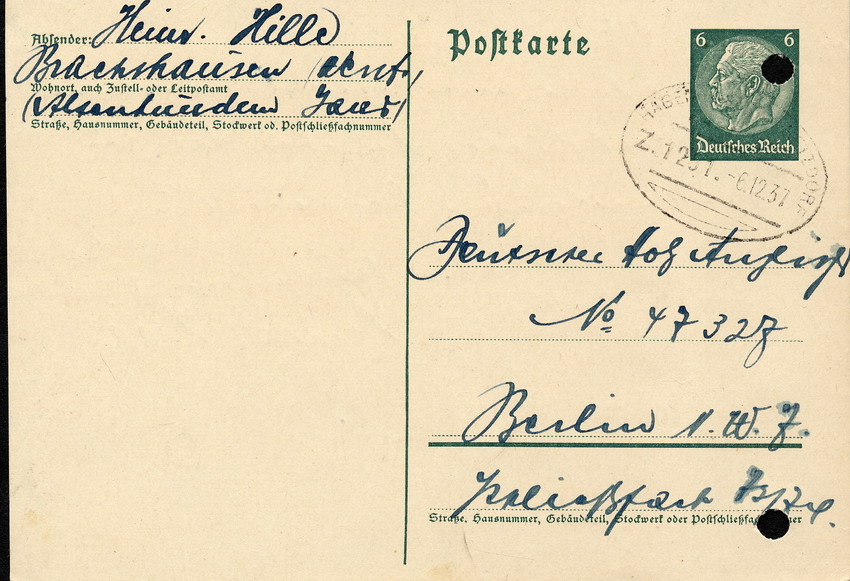 Absender: Heinr. Hille
Brachthausen
Wohnort, auch Zustell- oder Leitpostamt
(Altenhundem Land)
Straße, Hausnummer, Gebäudeteil, Stockwerk od. Postschließfachnummer
Postkarte
6 6
Deutsches Reich
HAGEN
Z. 1231. -6.12.37
Deutscher Holz Anzeiger
No 47327
Berlin N.W. 7.
Schließfach
Straße, Hausnummer, Gebäudeteil, Stockwerk oder Postschließfachnummer